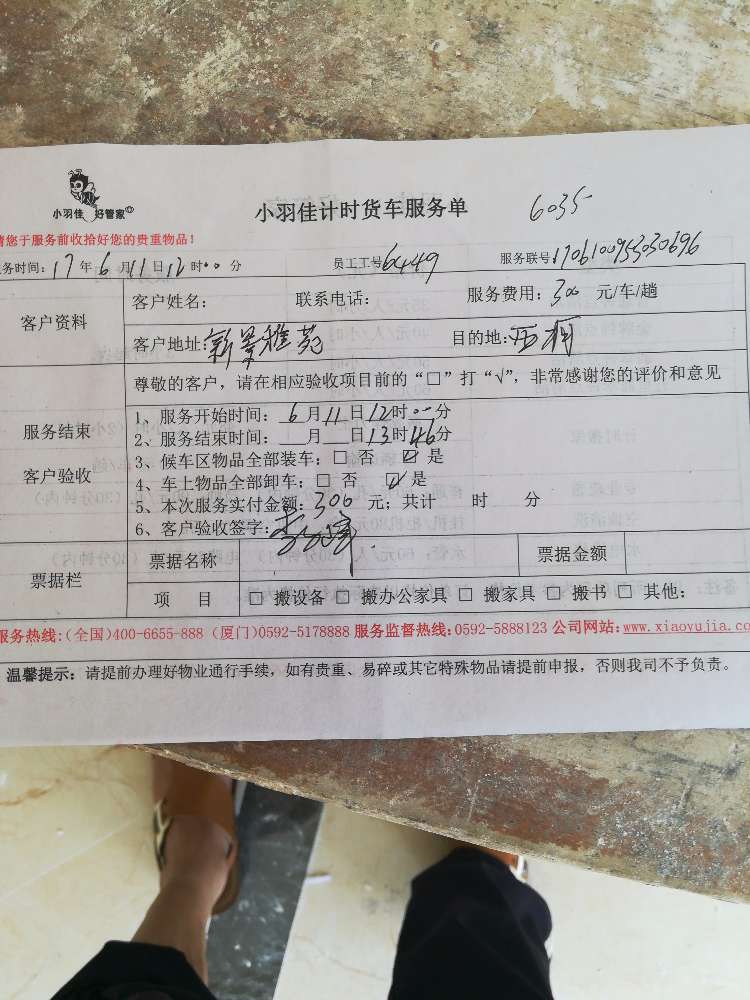 小羽佳 好管家
小羽佳计时货车服务单
6035
请您于服务前收拾好您的贵重物品！
务时间：17年6月11日12时00分 员工工号6449 服务联号1706100953030696
客户资料
客户姓名： 联系电话： 服务费用：300 元/车/趟
客户地址：新景雅苑 目的地：西柯
尊敬的客户，请在相应验收项目前的“□”打“√”，非常感谢您的评价和意见
服务结束
客户验收
1、服务开始时间：6月11日12时00分
2、服务结束时间： 月 日13时46分
3、候车区物品全部装车：□ 否 ☑ 是
4、车上物品全部卸车：□ 否 ☑ 是
5、本次服务实付金额：300 元；共计 时 分
6、客户验收签字：
票据栏
票据名称 票据金额
项 目 □ 搬设备 □ 搬办公家具 □ 搬家具 □ 搬书 □ 其他：
服务热线：(全国)400-6655-888 (厦门)0592-5178888 服务监督热线：0592-5888123 公司网站：www.xiaoyujia.co
温馨提示：请提前办理好物业通行手续，如有贵重、易碎或其它特殊物品请提前申报，否则我司不予负责。